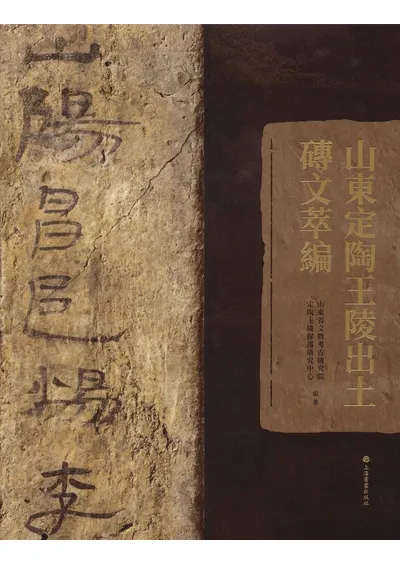 山陽昌邑楊李
山東定陶王陵出土
磚文萃編
山東省文物考古研究院
定陶王陵保護研究中心
編著
上海書畫出版社